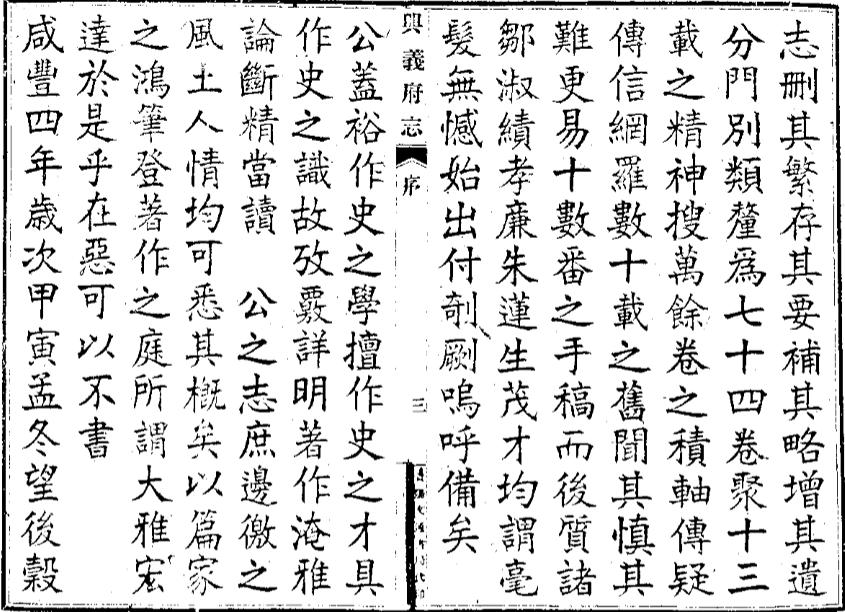 志刪其繁存其要補其略增其遺
分門別類釐爲七十四卷聚十三
載之精神搜萬餘卷之積軸傳疑
傳信網羅數十載之舊聞其慎其
難更易十數番之手稿而後質諸
鄒淑績孝廉朱蓮生茂才均謂毫
髮無憾始出付剞劂嗚呼備矣
興義府志
序
三
公蓋裕作史之學擅作史之才具
作史之識故攷覈詳明著作淹雅
論斷精當讀 公之志庶邊徼之
風土人情均可悉其槪矣以篇家
之鴻筆登著作之庭所謂大雅宏
達於是乎在惡可以不書
咸豐四年歲次甲寅孟冬望後穀